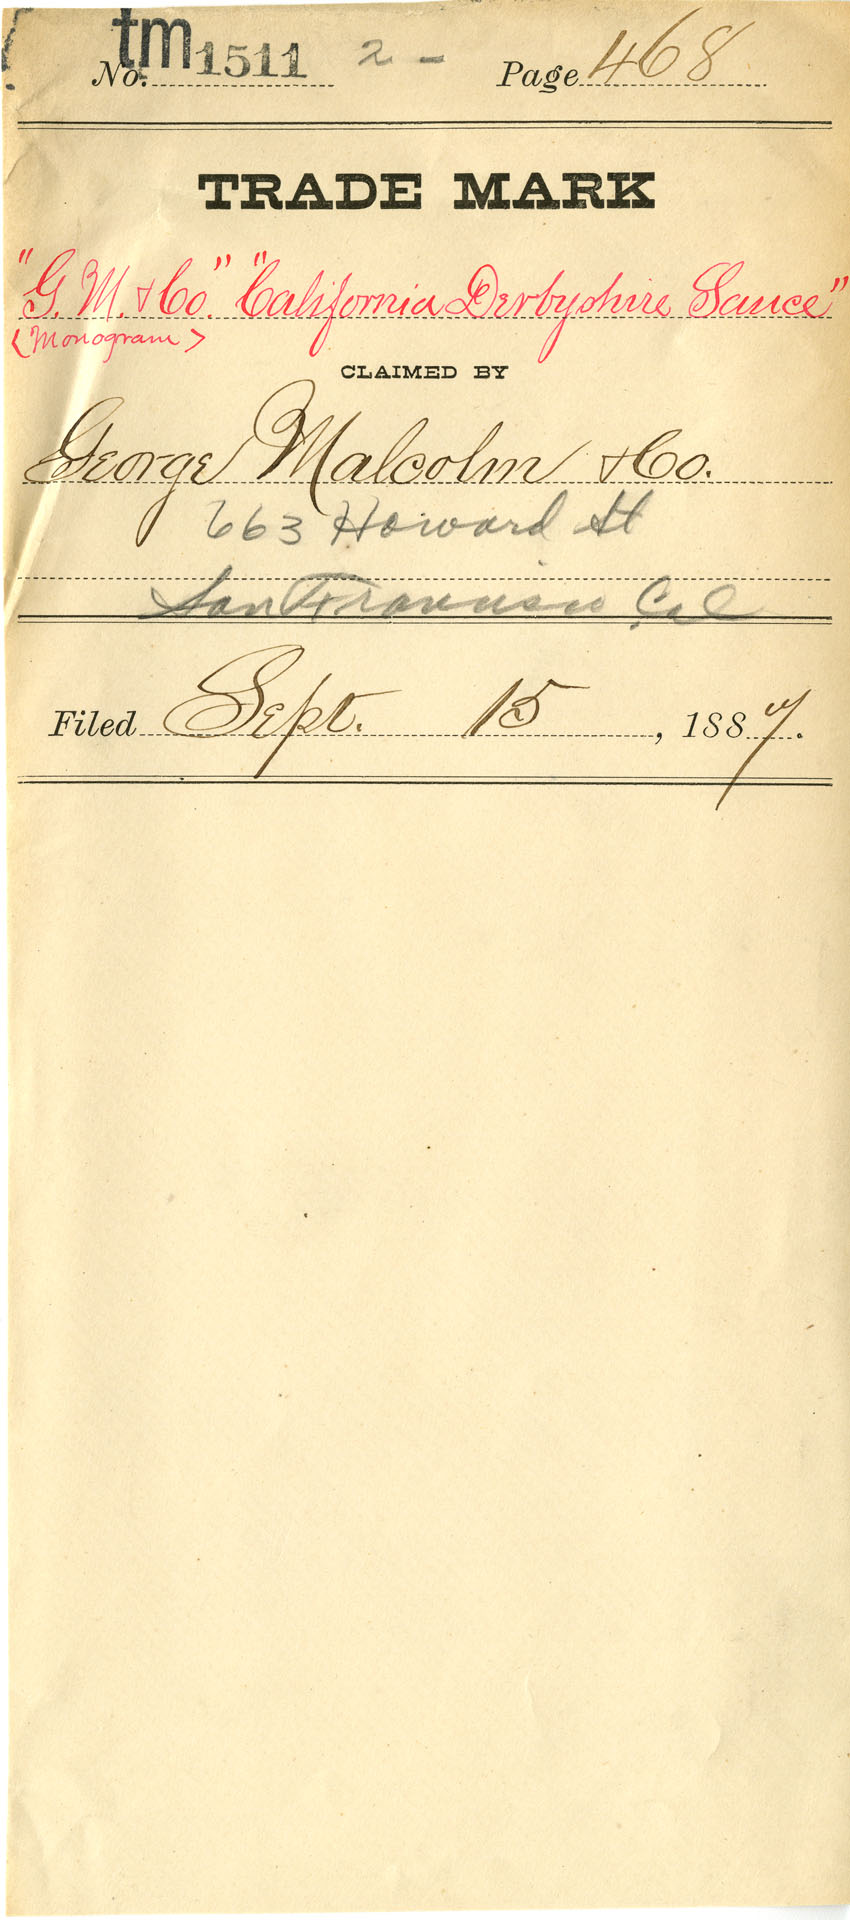 No. tm 1511 2 - Page 468
TRADE MARK
"G. M. & Co." "California Derbyshire Sauce"
<Monogram>
CLAIMED BY
George Malcolm & Co.
663 Howard St
San Francisco Cal
Filed Sept. 15, 1887.